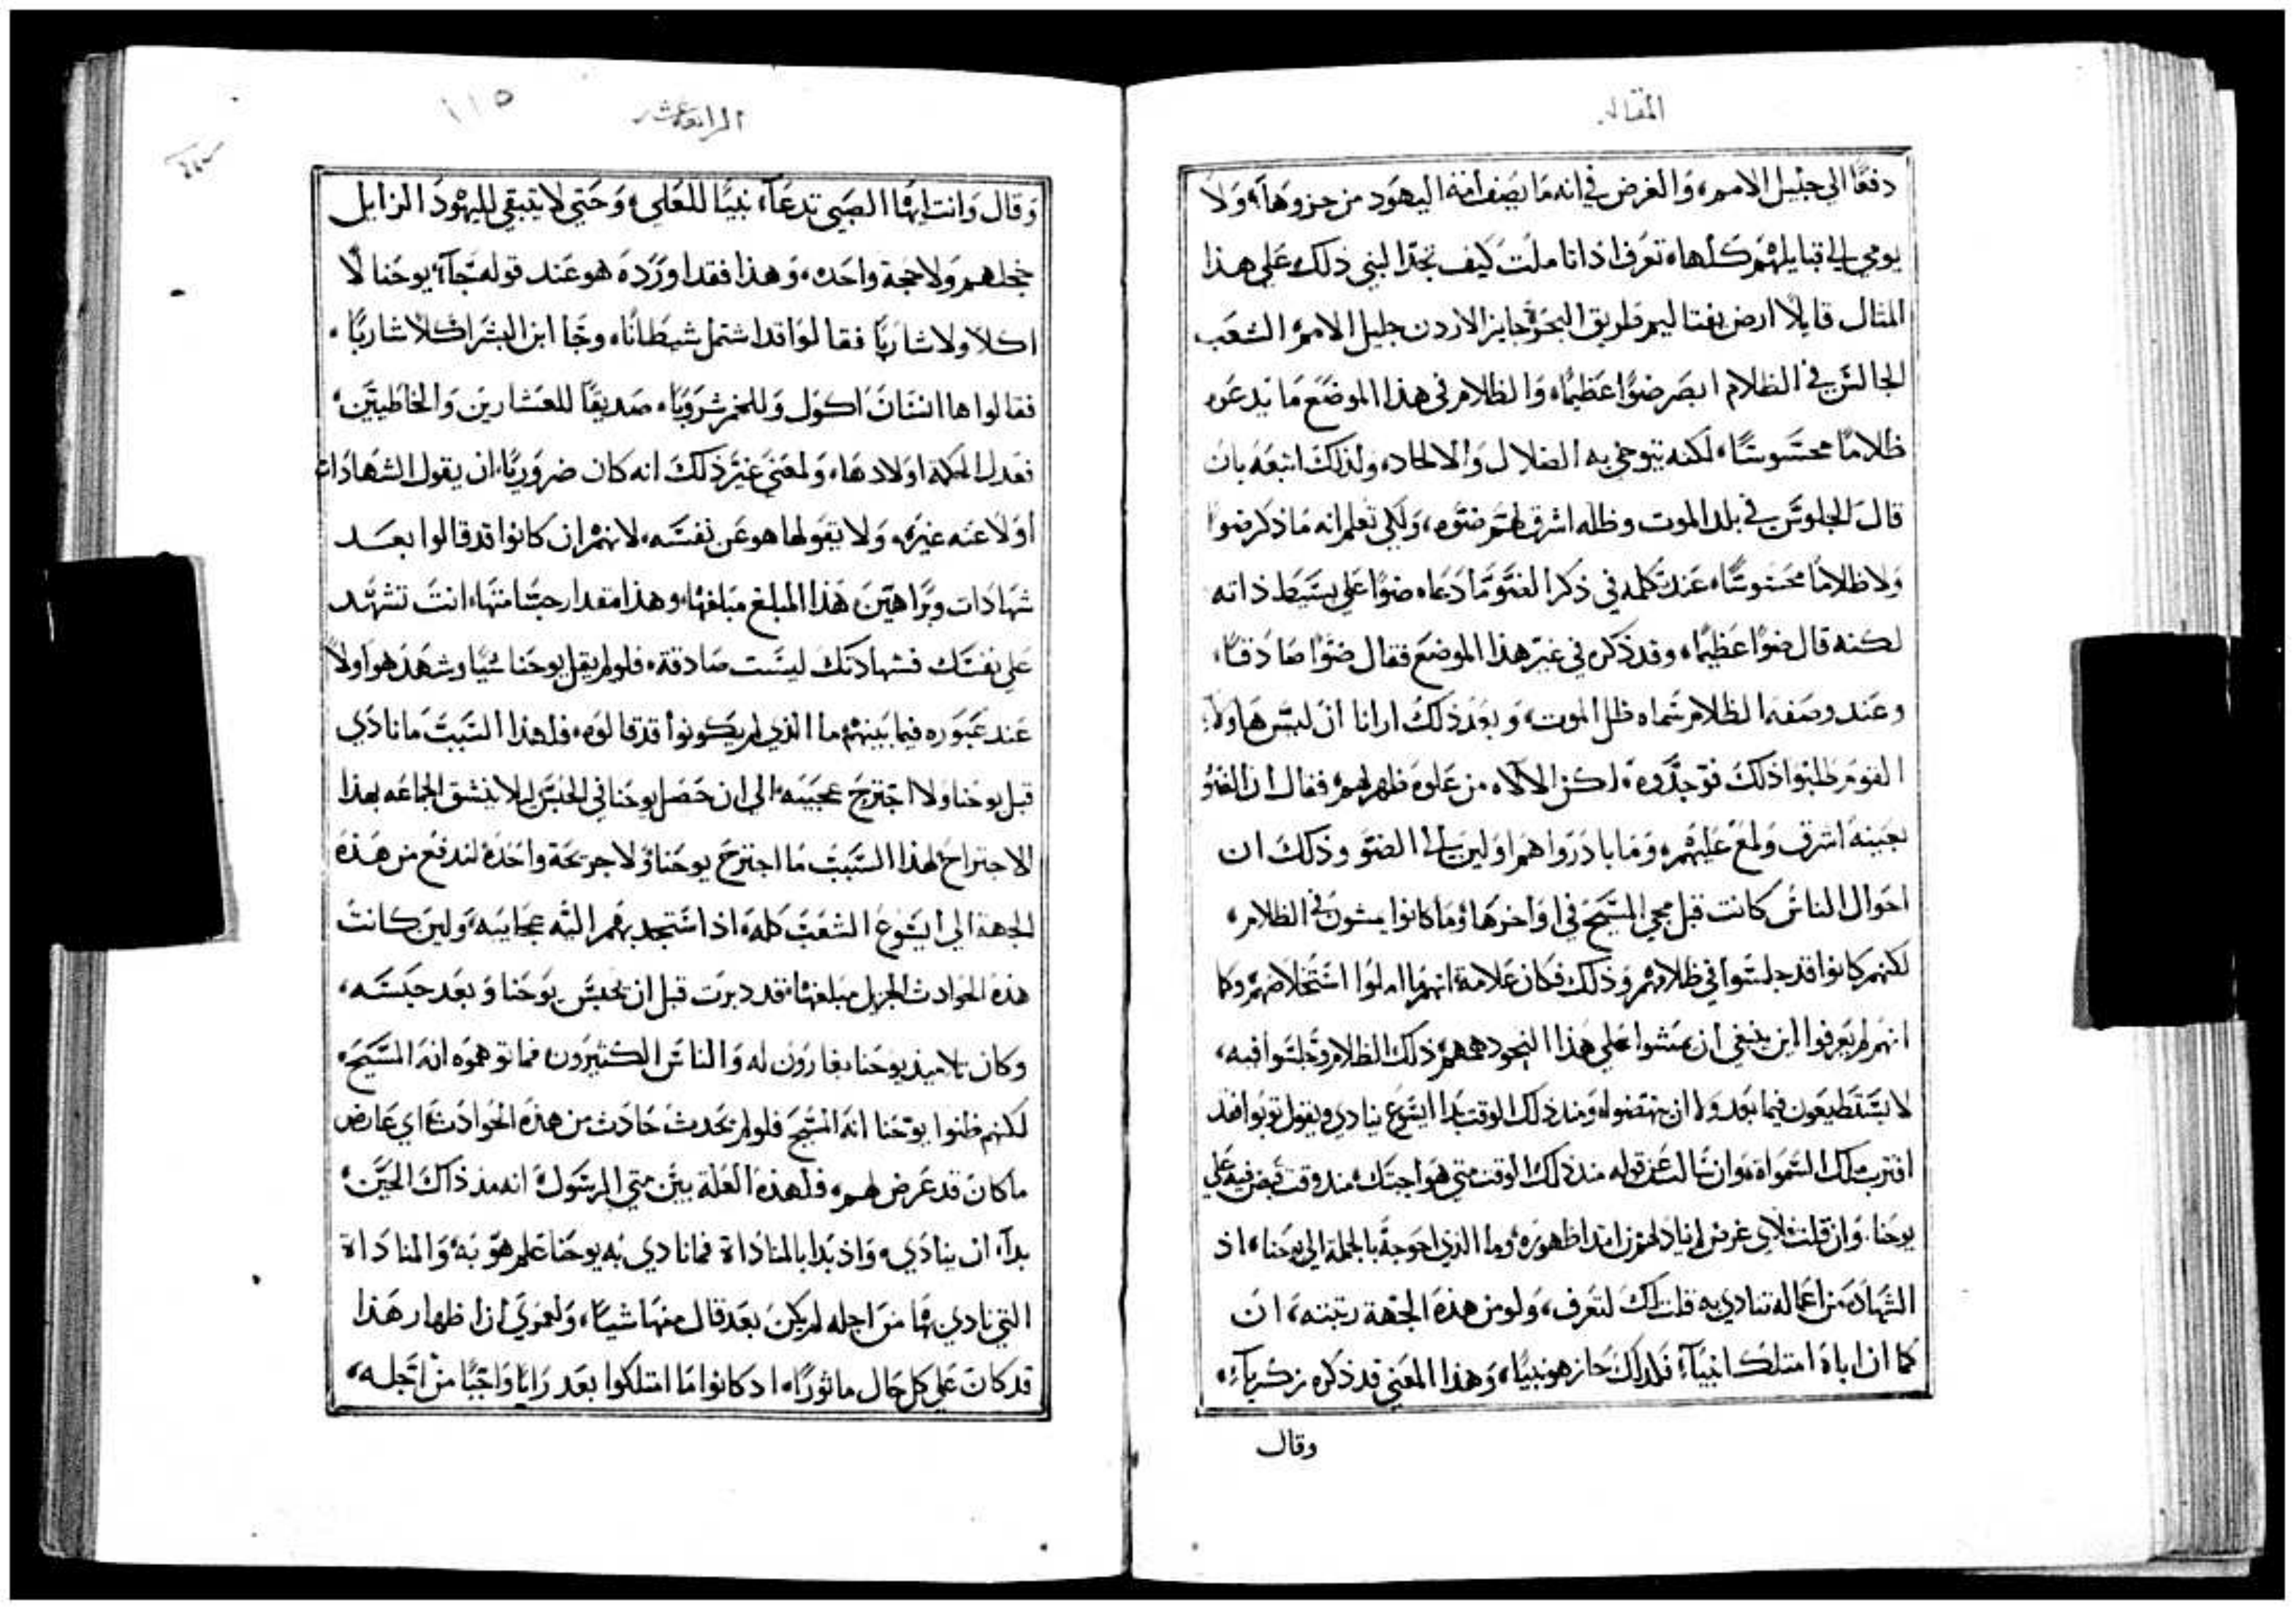 المقاله
دفعًا الي جليل الامم، والغرض في انه ما يصف افة اليهود من جزوها، ولا
يومي الي قبايلهم كلها، تعرف اذا تاملت كيف تجد النبي ذلك علي هذا
المثال قايلا ارض نفتاليم طريق البحر جايز الاردن جليل الامم، الشعب
الجالس في الظلام ابصر ضوًا عظيمًا، والظلام في هذا الموضع ما يدعوه
ظلامًا محسوسًا، لكنه يتوخي به الضلال والالحاد، ولذلك اتبعه بان
قال الجلوس في بلد الموت وظله اشرق لهم ضوه، ولكي تعلم انه ما ذكر ضوا
ولا ظلامًا محسوسًا، عند تكلمه في ذكر الضو ما دعاه ضوًا علي بسيط ذاته
لكنه قال ضوًا عظيمًا، وقد ذكره في غير هذا الموضع فقال ضوًا صادقًا،
وعند وصفه الظلام سماه ظل الموت، وبعد ذلك ارانا ان ليس هاولاء
القوم طلبوا ذلك فوجدوه، لكن الالاه من علوه ظهر لهم، فقال ان الضو
بعينه اشرق ولمع عليهم، وما بادروا هم اولين الي الضو وذلك ان
احوال الناس كانت قبل مجي المسيح في اواخرها، وما كانوا يمشون في الظلام،
لكنهم كانوا قد جلسوا في ظلامهم وذلك فكان علامة انهم ما املوا استخلاصهم وكما
انهم لم يعرفوا اين ينبغي ان يمشوا علي هذا النحو دهمهم ذلك الظلام وجلسوا فيه،
لا يستطيعون فيما بعد ولا ان ينهضوا، ومنذ ذلك الوقت بدا ايسوع ينادي ويقول توبوا فقد
اقتربت ملك السموات، وان سالت عن قوله منذ ذلك الوقت متي هو اجبتك، منذ وقت قبض فيه علي
يوحنا، وان قلت فلاي غرض لم يناد لهم من ابتدا ظهوره، وما الذي احوجه بالجملة الي يوحنا، اذ
الشهادة من اعماله تنادي به قلت لك لتعرف، ولو من هذه الجهة رتبته، ان
كما ان اباه امتلك انبياء، فلذلك حاز هو نبيًا، وهذا المعني قد ذكره زكرياء،
وقال
الرابعه عشر
١١٥
وقال وانت ايها الصبي تدعاء، نبيًا للعلي، وحتي لا يتبقي لليهود الزايل
خجلهم ولا حجة واحده، وهذا فقد اورده هو عند قوله جاء، يوحنا لا
اكلا ولا شاربًا فقالوا قد اشتمل شيطانًا، وجا ابن البشر اكلا شاربًا،
فقالوا ها انسان اكول وللخمر شروبًا، صديقًا للعشارين والخاطيين،
فعدل الحكمة اولادها، ولمعني غير ذلك انه كان ضروريًا، ان يقول الشهادات
اولا عنه غيره، ولا يقولها هو عن نفسه، لانهم ان كانوا قد قالوا بعد
شهادات وبراهين هذا المبلغ مبلغها، وهذا مقدار حسامتها، انت تشهد
علي نفسك فشهادتك ليست صادقة، فلو لم يقل يوحنا شيًا وشهد هو اولا
عند عبوره فيما بينهم ما الذي لم يكونوا قد قالوه، فلهذا السبب ما نادي
قبل يوحنا ولا اجترح عجيبه، الي ان حصل يوحنا في الحبس ليلا ينشق الجماعه بهذا
الاجتراح لهذا السبب ما اجترح يوحنا ولا جريحة واحدة لتدفع من هذه
الجهة الي ايسوع الشعب كله، اذا استجد بهم اليه عجايبه، ولين كانت
هذه الحوادث الجزيل مبلغها، قد دبرت قبل ان يحبس يوحنا وبعد حبسه،
وكان تلاميذ يوحنا يغارون له والناس الكثيرون فما توهموه انه المسيح،
لكنهم ظنوا يوحنا انه المسيح فلو لم يحدث حادث من هذه الحوادث، اي عارض
ما كان قد عرض لهم، فلهذه العلة بين متي الرسول، انه منذ ذاك الحين،
بداء، ان ينادي، واذ بدا بالمناداة فما نادي به يوحنا علم هو به، والمناداة
التي نادي بها من اجله لم يكن بعد قال منها شيا، ولعمري ان اظهار هذا
قد كان علي كل حال ماثورًا، اد كانوا ما امتلكوا بعد رايا واجبًا من اجله،